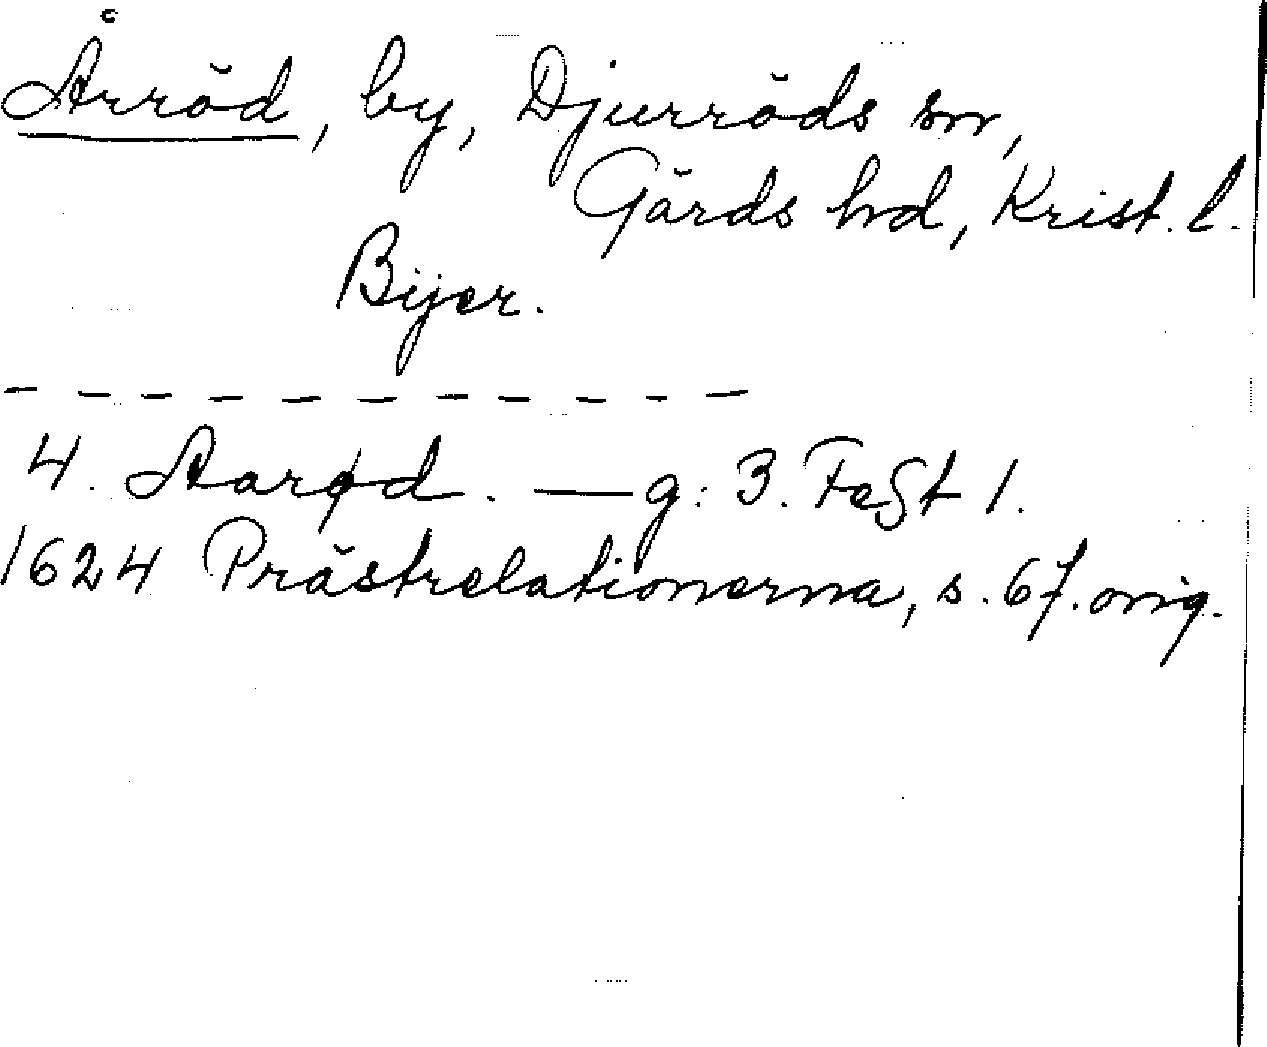 Årröd, by, Djurröds sn,
Gärds hd, Krist. l.
Bijer.
4. Aarød. — g: 3. Fest 1.
1624 Prästrelationerna, s. 67. orig.